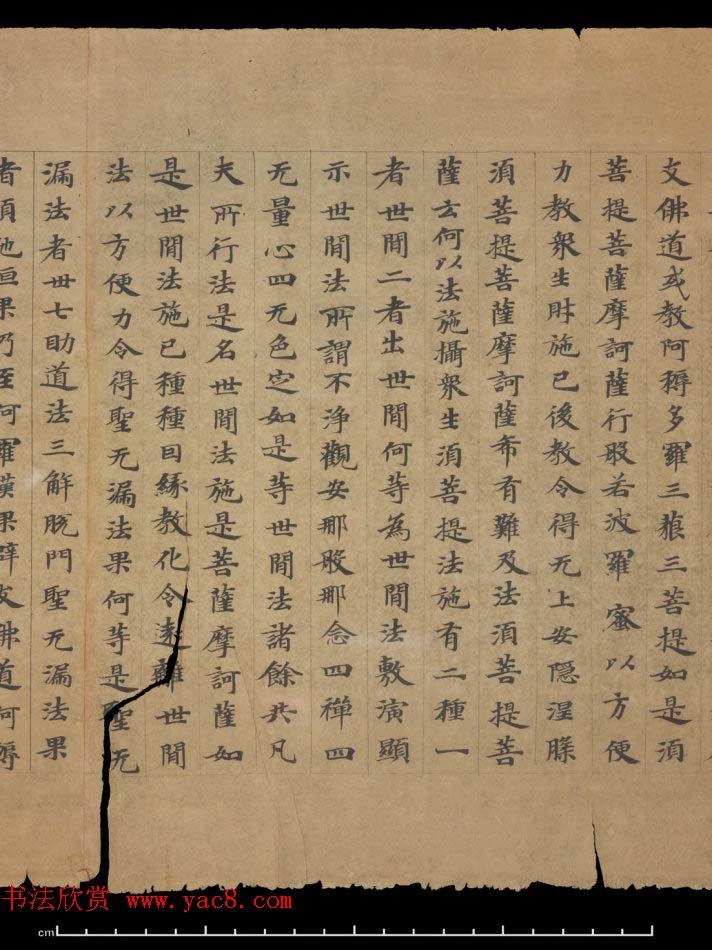 文佛道或教阿耨多羅三藐三菩提如是須
菩提菩薩摩訶薩行般若波羅蜜以方便
力教衆生財施已後教令得无上安隠涅縣
須菩提菩薩摩訶薩希有難及法須菩提菩
薩云何以法施攝衆生須菩提法施有二種一
者世閒二者出世閒何等為世閒法敷演顯
示世閒法所謂不淨觀安那般那念四禪四
无量心四无色定如是等世閒法諸餘共凡
夫所行法是名世閒法施是菩薩摩訶薩如
是世閒法施已種種因緣教化令遠離世閒
法以方便力令得聖无漏法果何等是聖无
漏法者卅七助道法三解脫門聖无漏法果
者須陁洹果乃至阿羅漢果辟支佛道阿耨
书法欣赏 www.yac8.com
cm